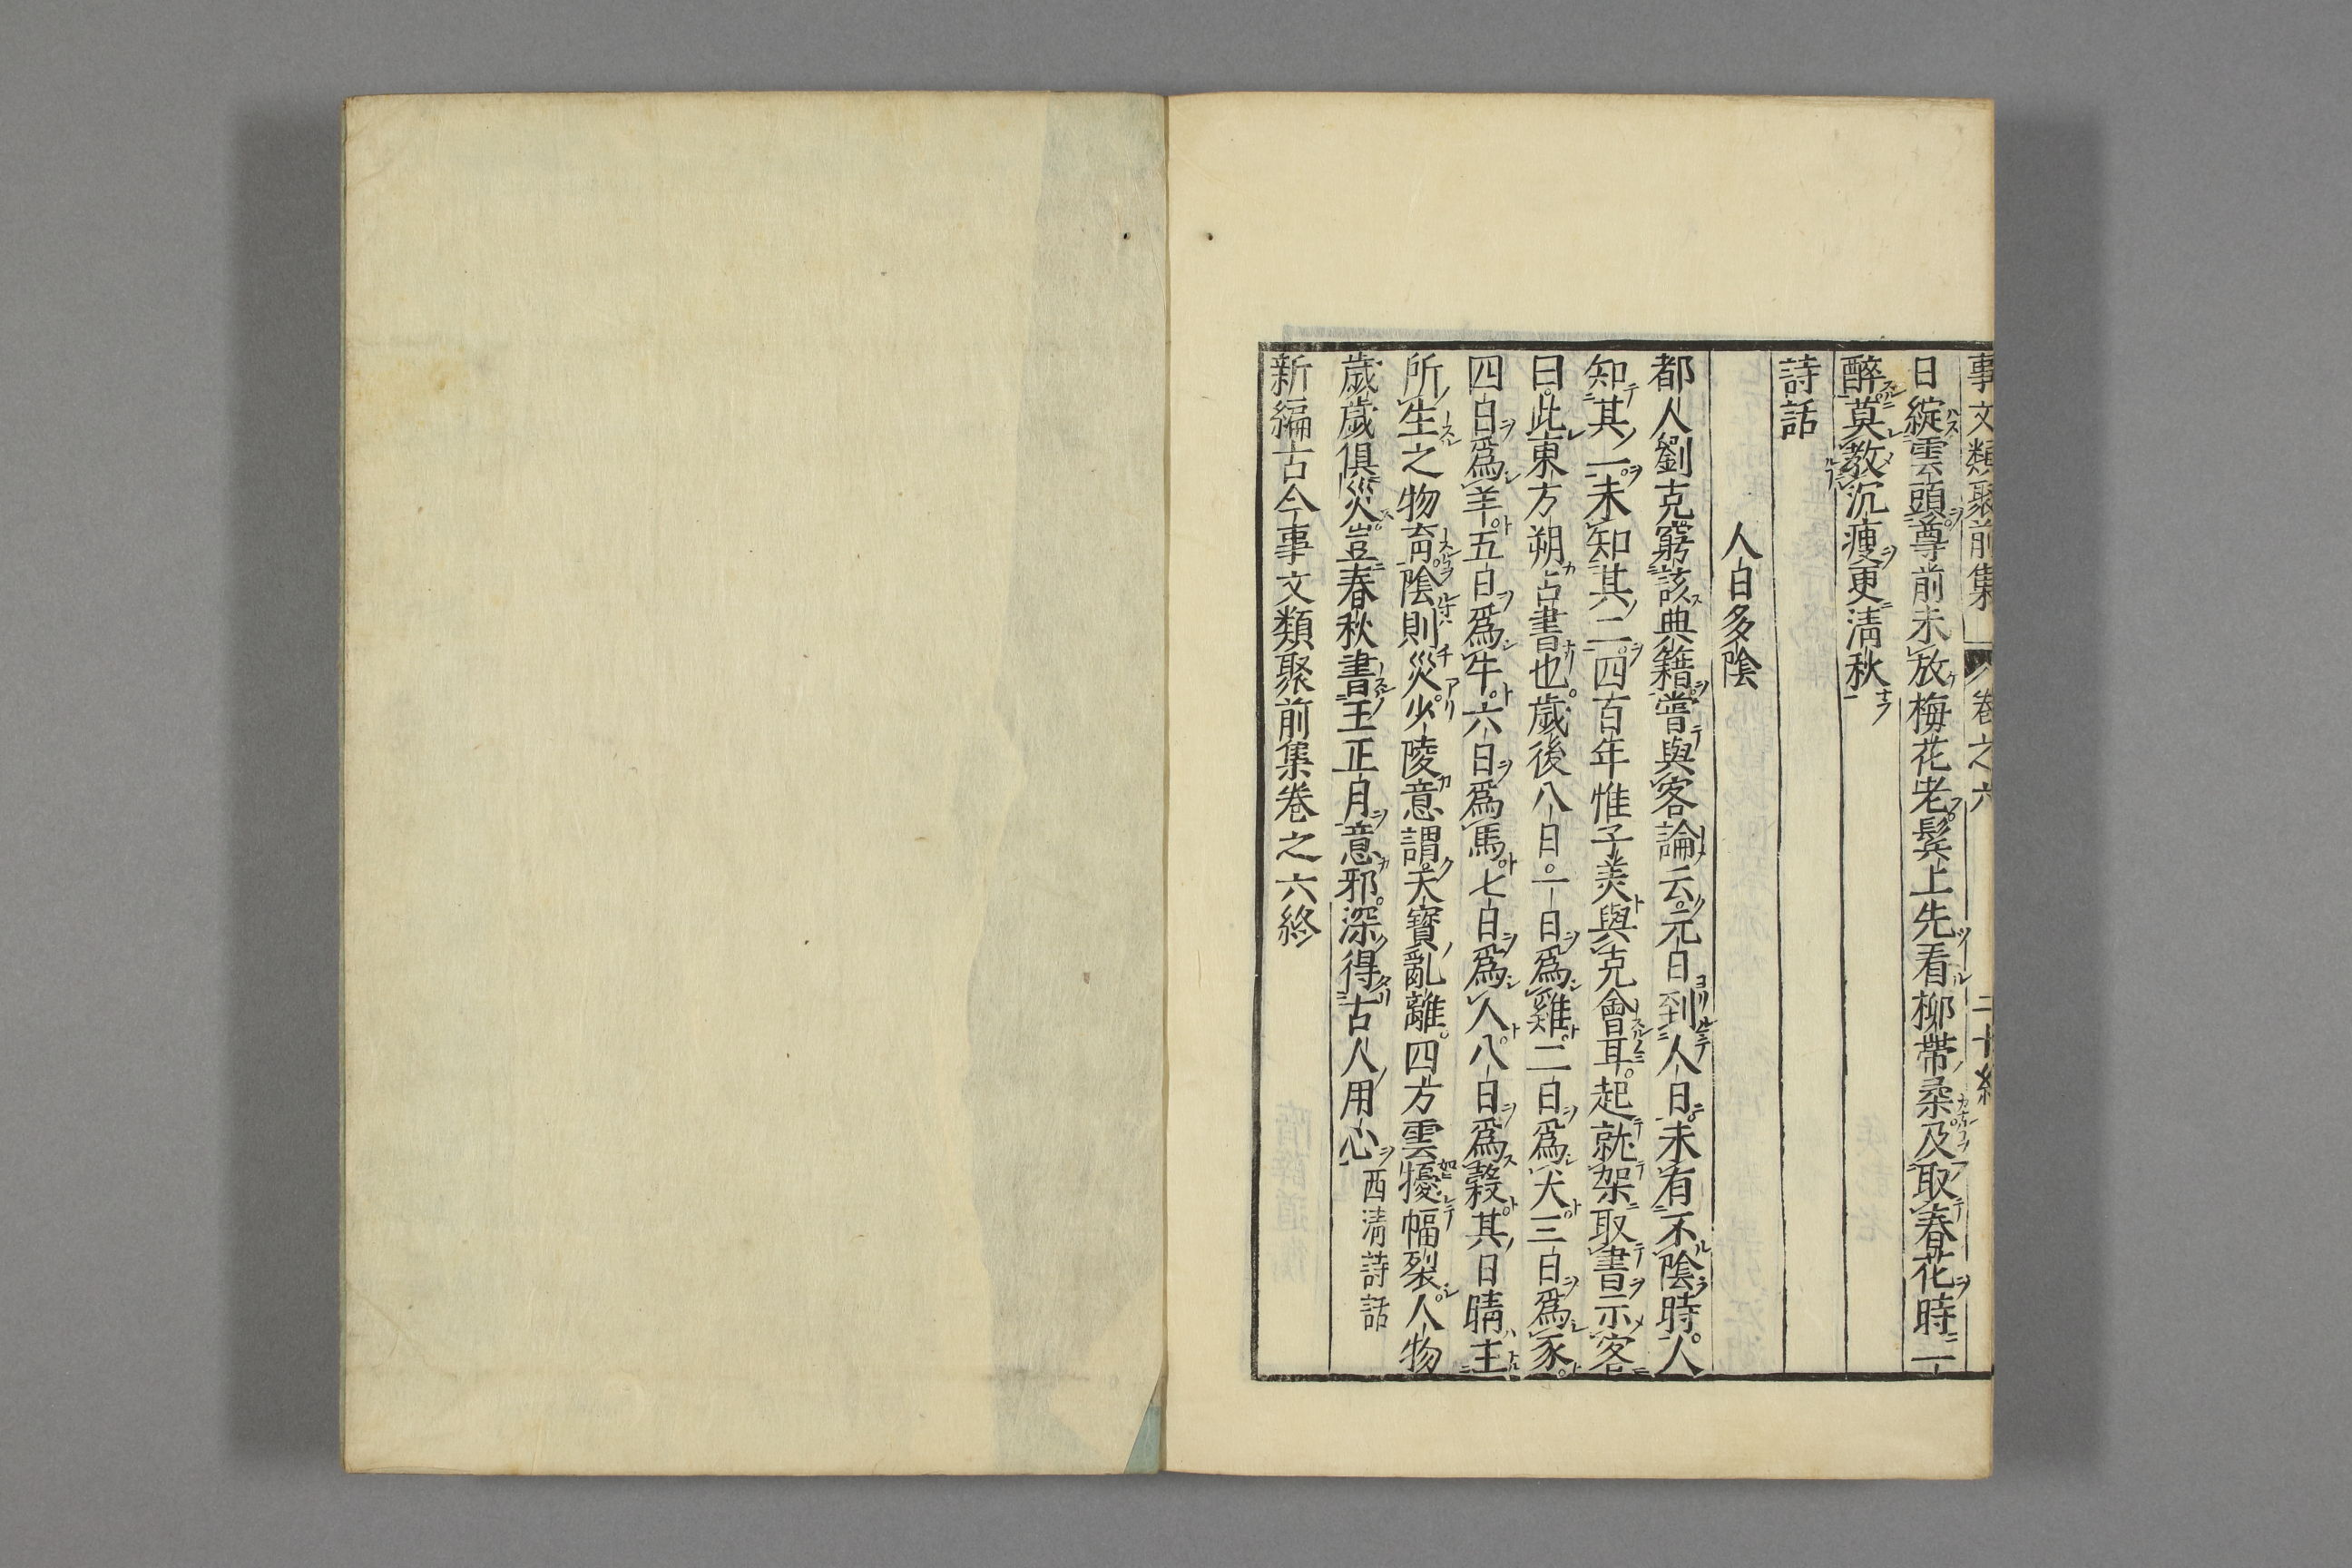 事文類聚前集 卷之六 二十終
日綻雲頭尊前未放梅花老鬂上先看柳帶柔及取春花時一
醉莫教沉瘦更清秋
詩話
人日多陰
都人劉克窮該典籍嘗與客論云元日到人日未有不陰時人
知其一未知其二四百年惟子美與克會耳起就架取書示客
曰此東方朔占書也歲後八日一日爲雞二日爲犬三日爲豕
四日爲羊五日爲牛六日爲馬七日爲人八日爲穀其日晴主
所生之物育陰則災少陵意謂天寳亂離四方雲擾幅裂人物
歲歲俱災豈春秋書王正月意邪深得古人用心西清詩話
新編古今事文類聚前集卷之六終